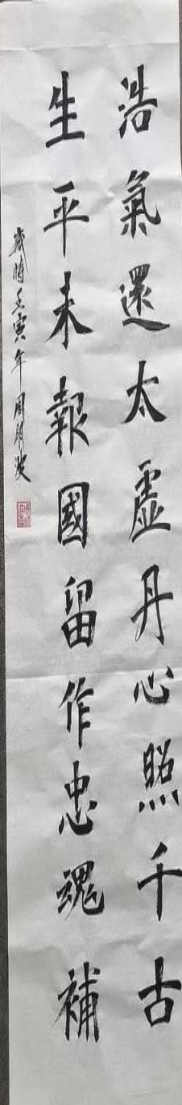 浩氣還太虛丹心照千古
生平未報國留作忠魂補
歲時壬寅年周